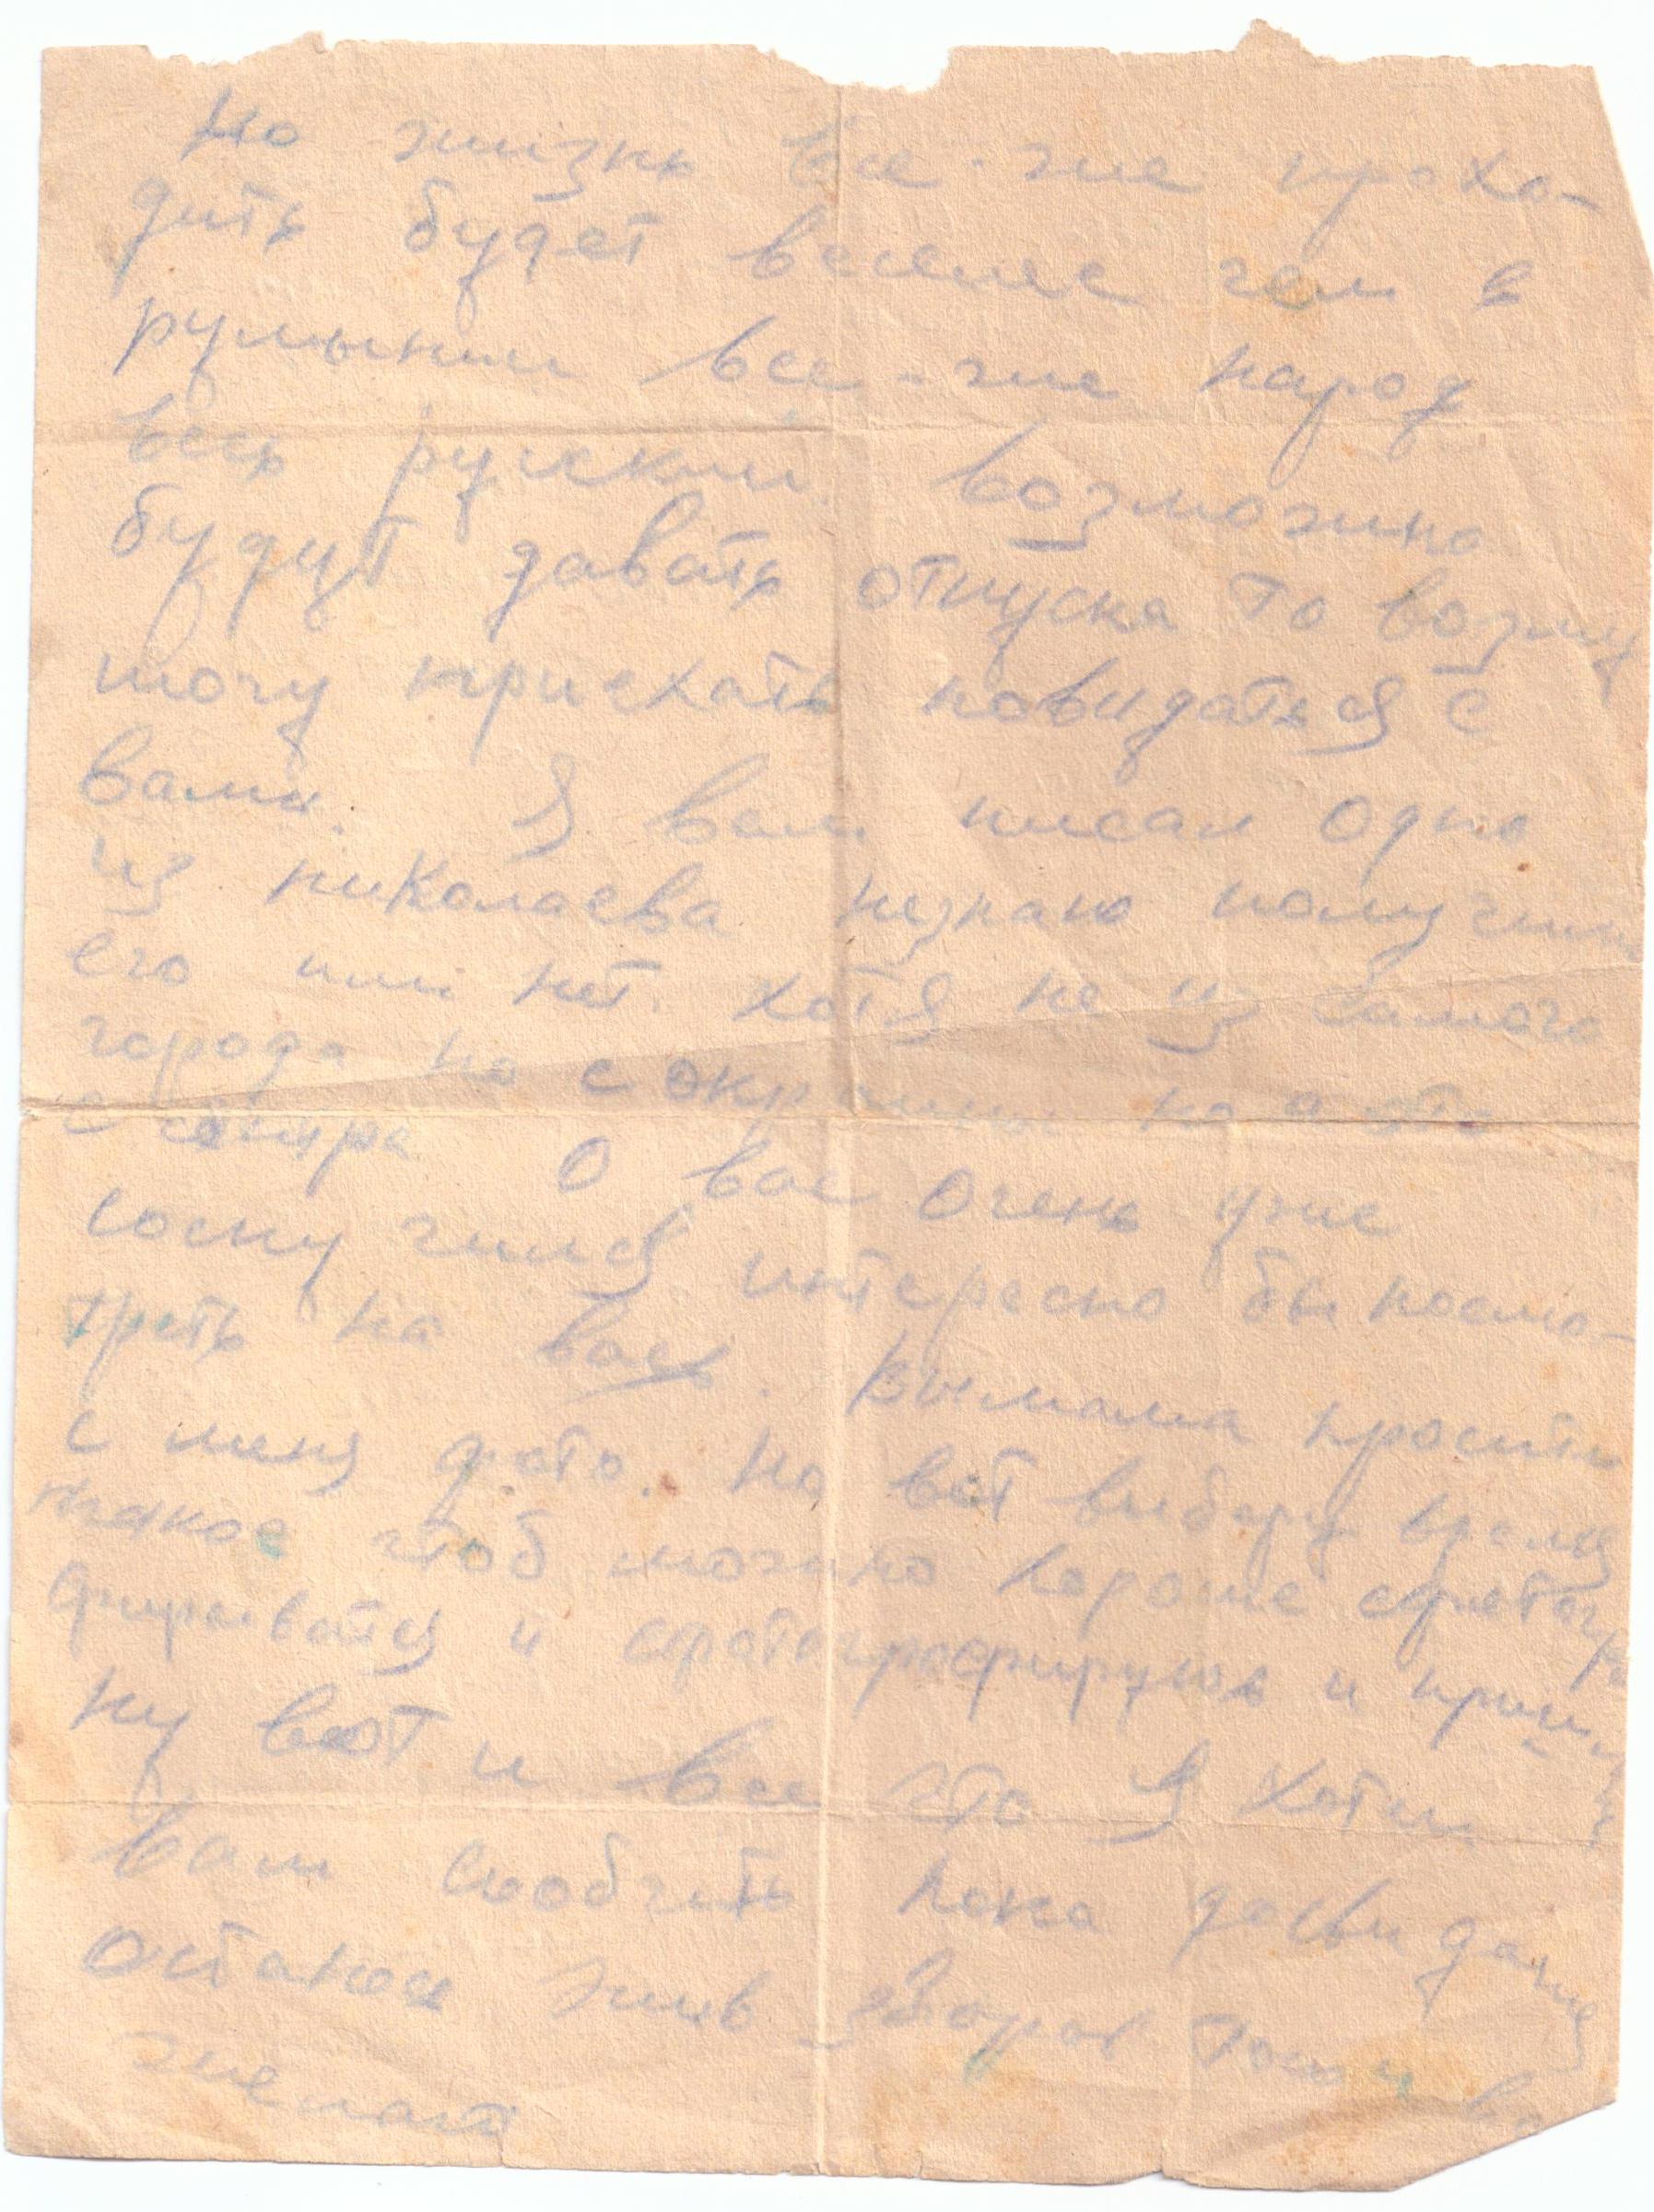 Но жизнь все-же прохо-
дить будет веселее чем в
румынии все-же народ
весь руский. Возможно
будут давать отпуска то возму
могу приехать повидаться с
вами. Я вам писал одно
из николаева незнаю получили
его или нет. хотя не из самого
города но с окраины но а это
О вас очень уже
соскучился интересно бы посмо-
треть на вась. Вы мама просити
с меня фото. Но вот виберу время
такое чтоб можно хороше сфотогра
фироватся и сфотографируюь и пришлю
ну вот и все что я хотел
вам сообчить пока досвидания
остаюсь жив здоров того и ва
желаю